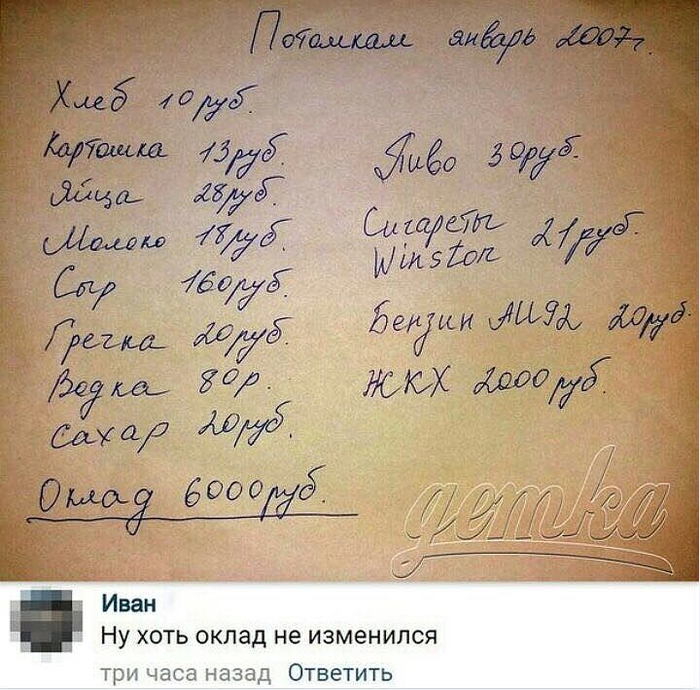 Потомкам январь 2007г.
Хлеб 10 руб.
Картошка 13 руб.
Яйца 28 руб.
Молоко 18 руб.
Сыр 160 руб.
Гречка 20 руб.
Водка 80 р.
Сахар 20 руб.
Оклад 6000 руб.
Пиво 30 руб.
Сигареты
Winston 21 руб.
Бензин АИ92 20 руб.
ЖКХ 2000 руб.
gemka
Иван
Ну хоть оклад не изменился
три часа назад Ответить